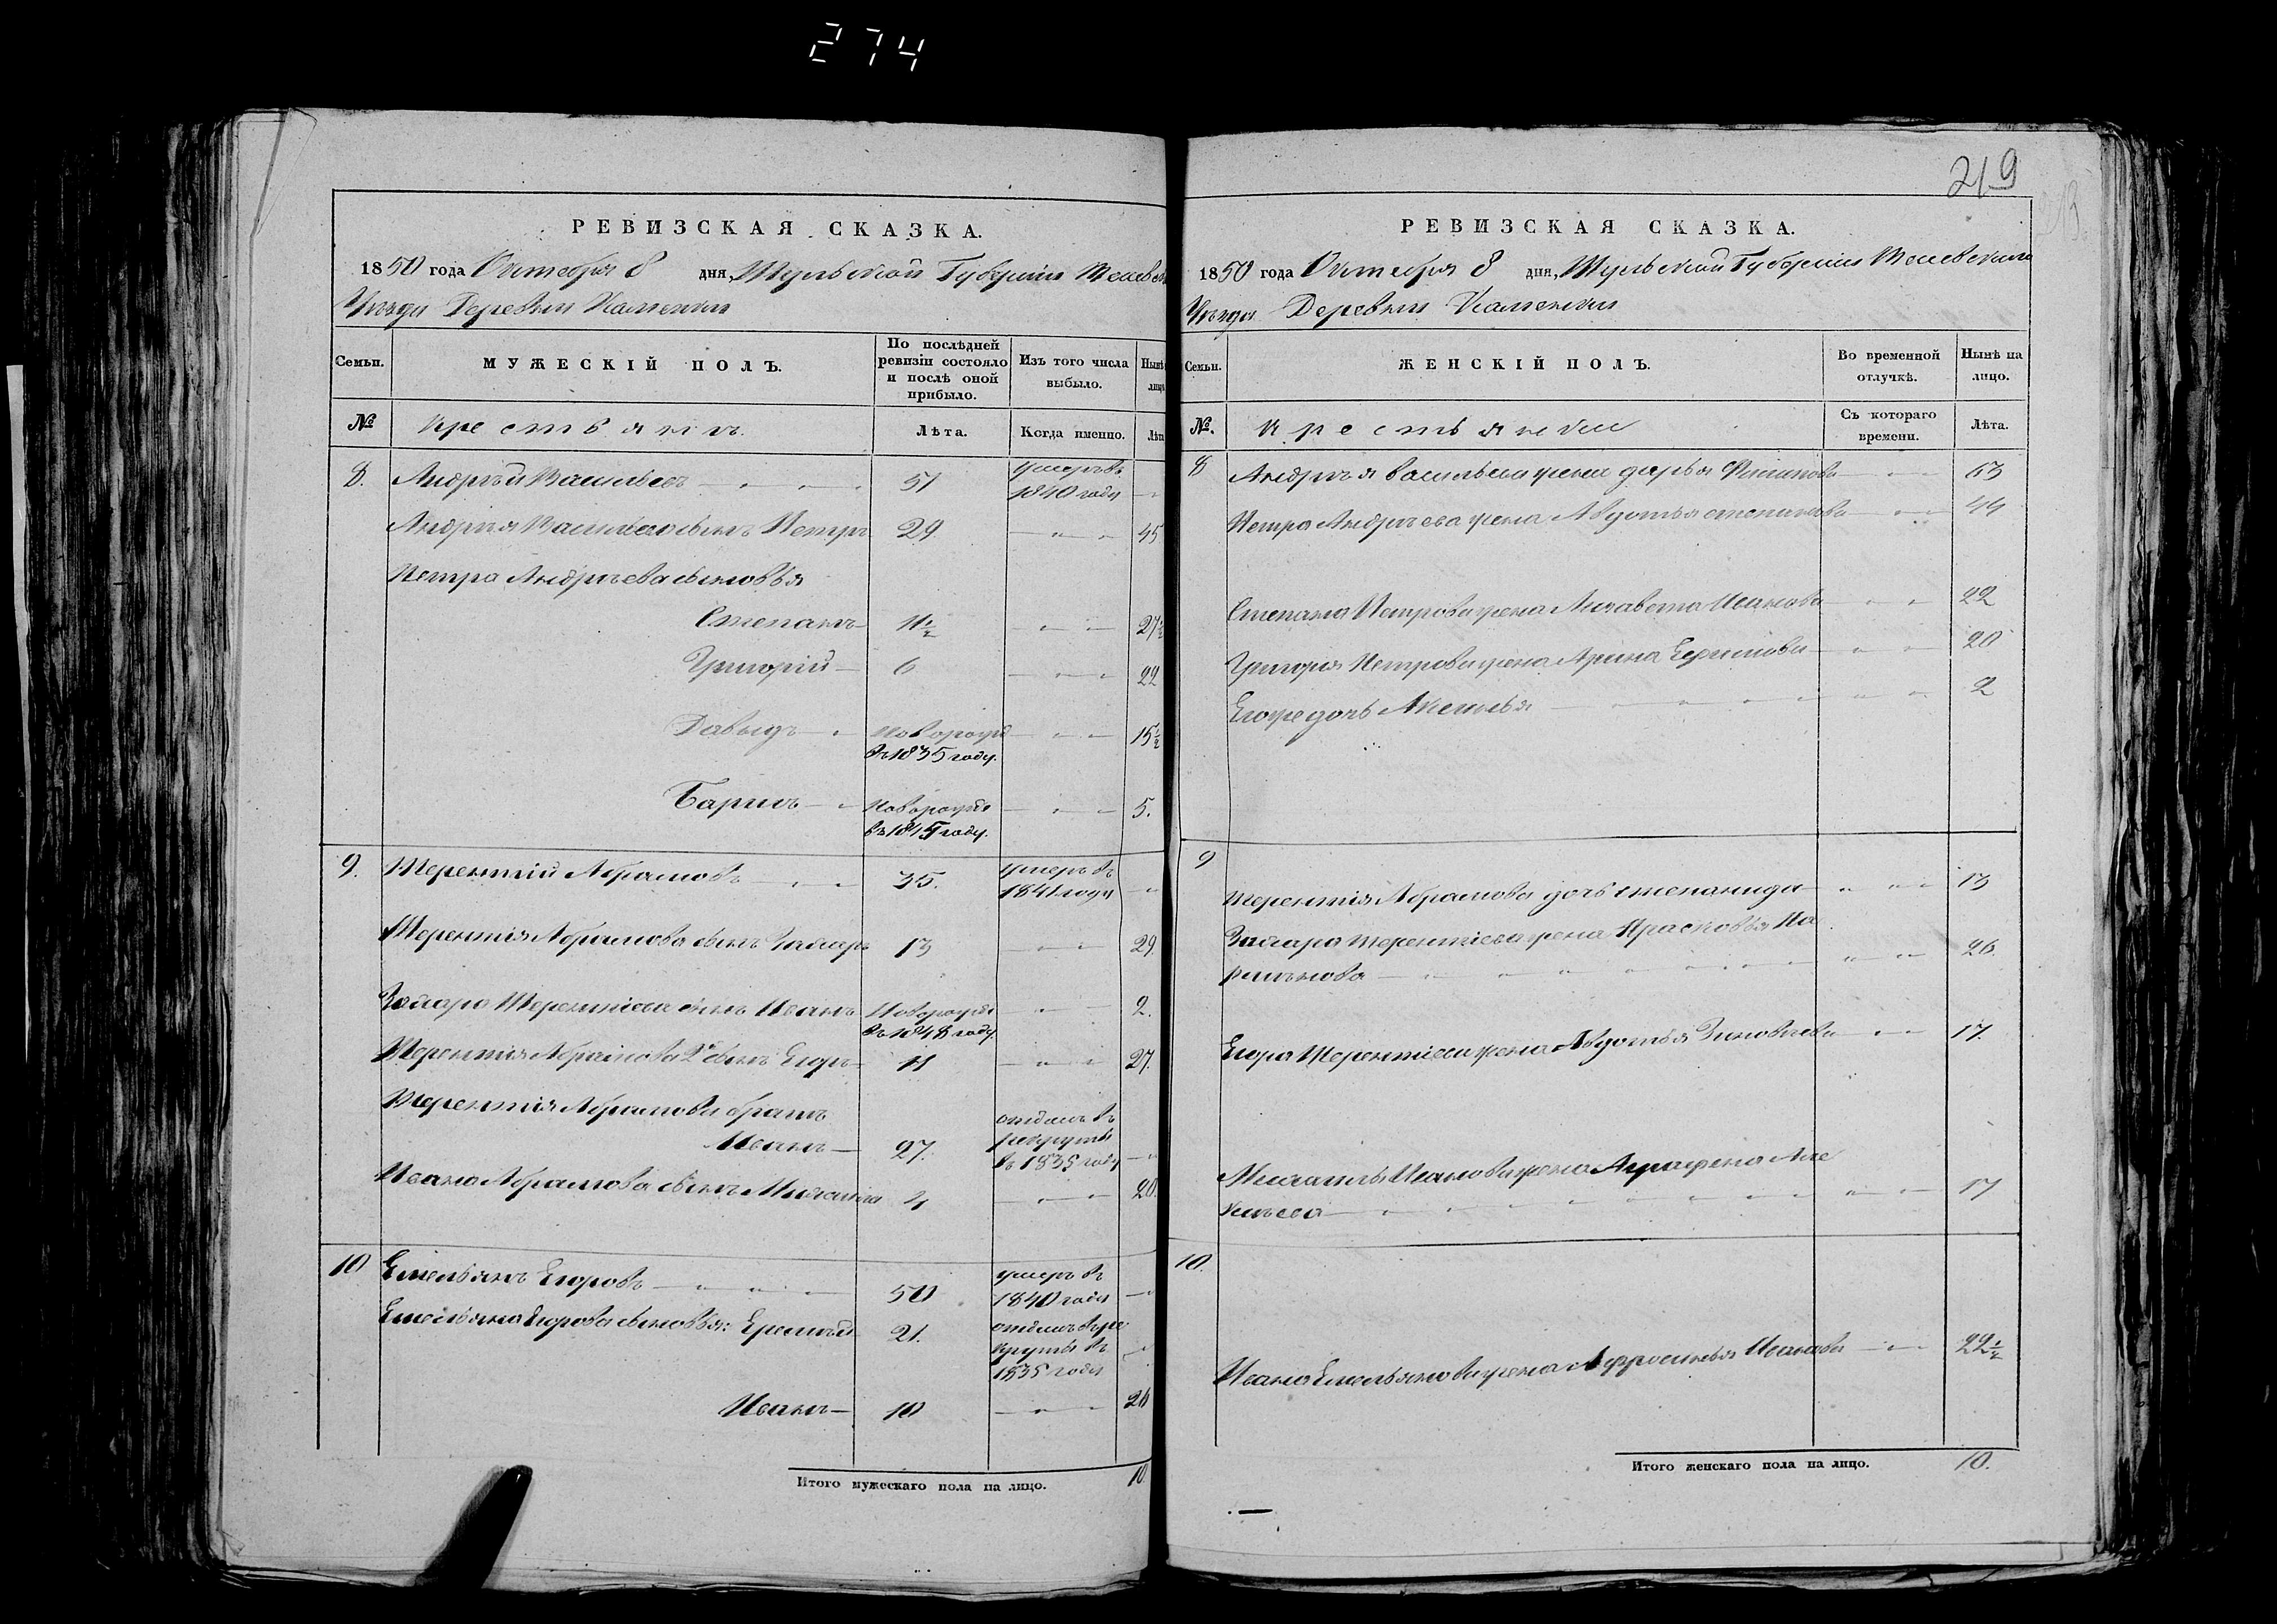 274
РЕВИЗСКАЯ СКАЗКА.
1850 года Октября 8 дня, Тульской Губерніи
Уезда Деревни Каменки
Семьи.
МУЖЕСКІЙ ПОЛЪ.
По послѣдней ревизіи состояло и послѣ оной прибыло.
Изъ того числа выбыло.
Нынѣ
лицо
№
Крестьянъ.
Лѣта.
Когда именно.
Лѣт
8. Андрѣй Васильевъ 51 умеръ въ 1840 году
Андрѣя Васильева сынъ Петръ 29 45
Петра Андрѣева сыновья
Степанъ 11½ 27½
Григорій 6 22
Давыдъ новорожд въ 1835 году. 15½
Новорожде въ 1845 году. 5.
9. Терентій Абрамовъ 35. умеръ въ 1841 году
Терентія Абрамова сынъ Захаръ 13 29.
Захара Терентіева сынъ Иванъ Новорожде въ 1848 году 2.
Терентія Абрамова 2й сынъ Егоръ 11 27.
Терентія Абрамова братъ
Иванъ 27. отданъ въ рекруты въ 1835 году
Ивана Абрамова сынъ Михаила 4 20.
10 Емельянъ Егоровъ 50 умеръ въ 1840 году
Емельяна Егорова сыновья: Еремѣй 21. отданъ въ рекруты въ 1835 году
Иванъ 10 26
Итого мужескаго пола на лицо. 10
219
РЕВИЗСКАЯ СКАЗКА.
1850 года Октября 8 дня, Тульской Губерніи
Уезда Деревни Каменки
Семьи.
ЖЕНСКІЙ ПОЛЪ.
Во временной отлучкѣ.
Нынѣ на лицо.
№.
Крестьянки
Съ котораго времени.
Лѣта.
8 Андрѣя Васильева жена дарья Филипова 63
Петра Андрѣева жена Авдотья степанова 44
Степана Петрова жена Лизавета Иванова 22
Григорія Петрова жена Арина Ефимова 20
Егоже дочь Аксинья 2
9
Терентія Абрамова дочь степанида 13
Захара терентіева жена Прасковья
26.
Егора Терентіева жена Авдотья Зиновьева 17.
Михаилы Иванова жена Аграфена Але
ксѣева 17
10.
Ивана Емельянова жена Афросинья Иванова 22½
Итого женскаго пола на лицо. 10.